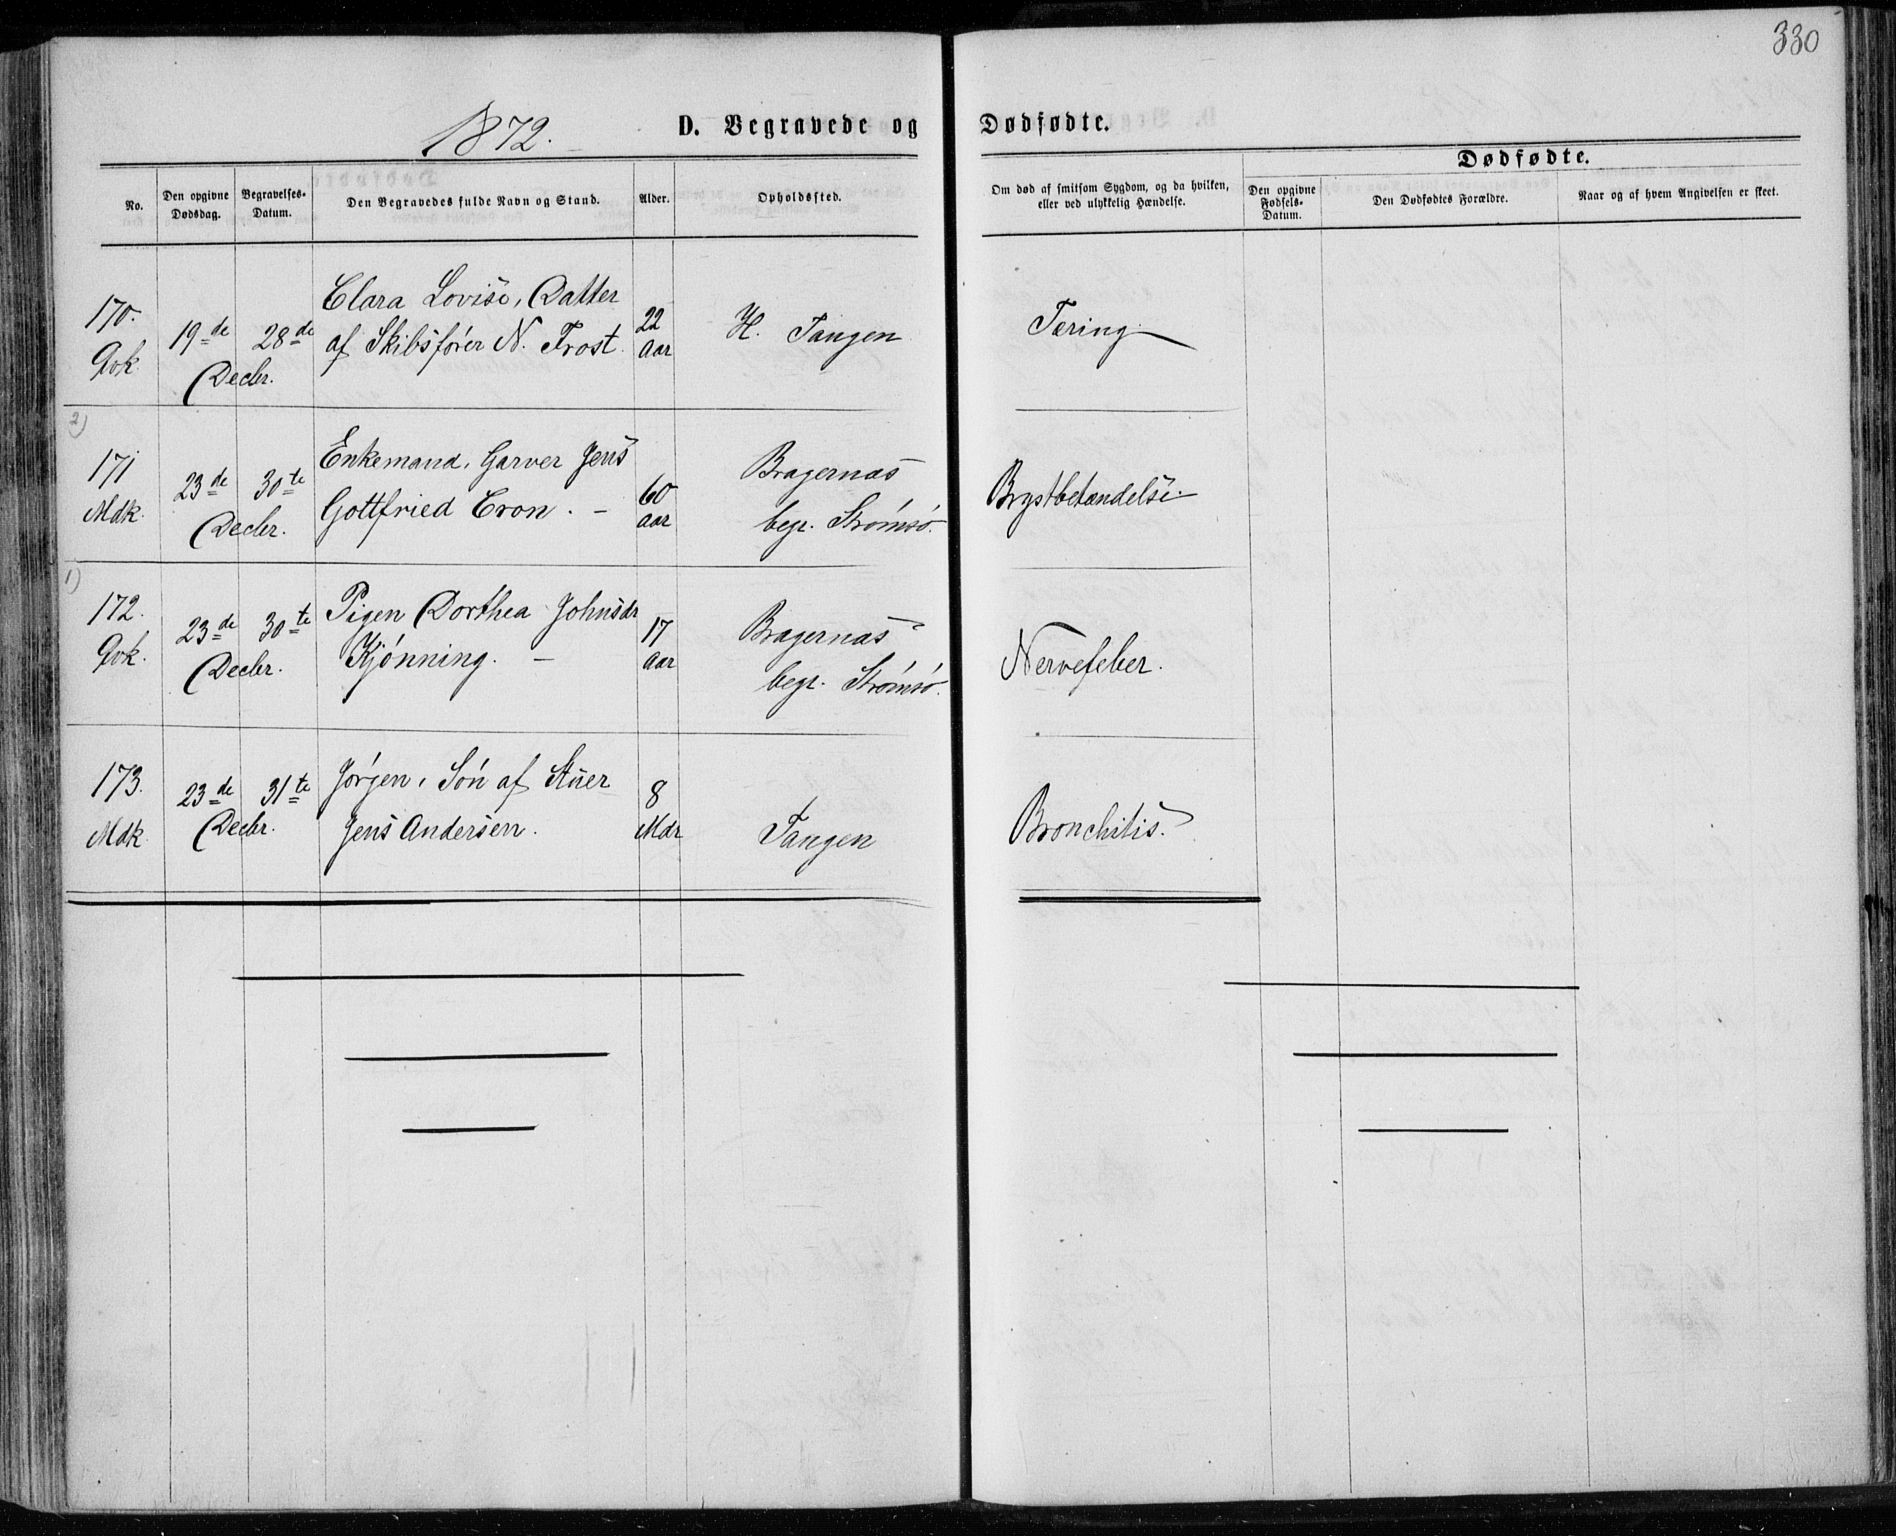 330
1872.
D. Begravede og Dødfødte.
No.
Den opgivne Dødsdag.
Begravelses-Datum.
Den Begravedes fulde Navn og Stand.
Alder.
Opholdssted.
Om død af smitsom Sygdom, og da hvilken, eller ved ulykkelig Hændelse.
Dødfødte.
Den opgivne Fødsels-Datum.
Den Dødfødtes Forældre.
Naar og af hvem Angivelsen er skeet.
170.
Qvk.
19de 28de
Decbr.
Clara Lovise, Datter
af Skibsfører N. Frost.
22
Aar
H. Tangen
Tæring
2)
171
Mdk.
23de 30te
Decbr.
Enkemand, Garver Jens
Gottfried Cron. –
60
Aar
Bragernæs
begr. Strømsø.
Brystbetændelse.
1)
172.
Qvk.
23de 30te
Decbr.
Pigen Dorthea Johnsdr
Kjønning. –
17
Aar
Bragernæs
begr. Strømsø.
Nervefeber.
173.
Mdk.
23de 31te
Decbr.
Jørgen, Søn af Stuer
Jens Andersen.
8
Mdr
Tangen
Bronchitis.